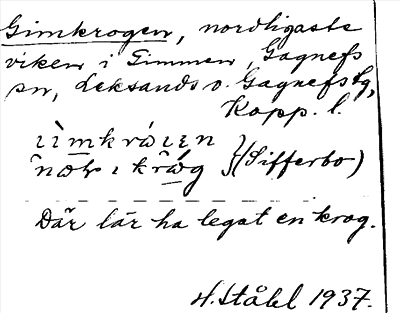 Gimkrogen, nordligaste
viken i Gimmen, Gagnefs
sn, Leksands o. Gagnefs tg,
Kopp. l.
(Sifferbo)
Där lär ha legat en krog.
H. Ståhl 1937.